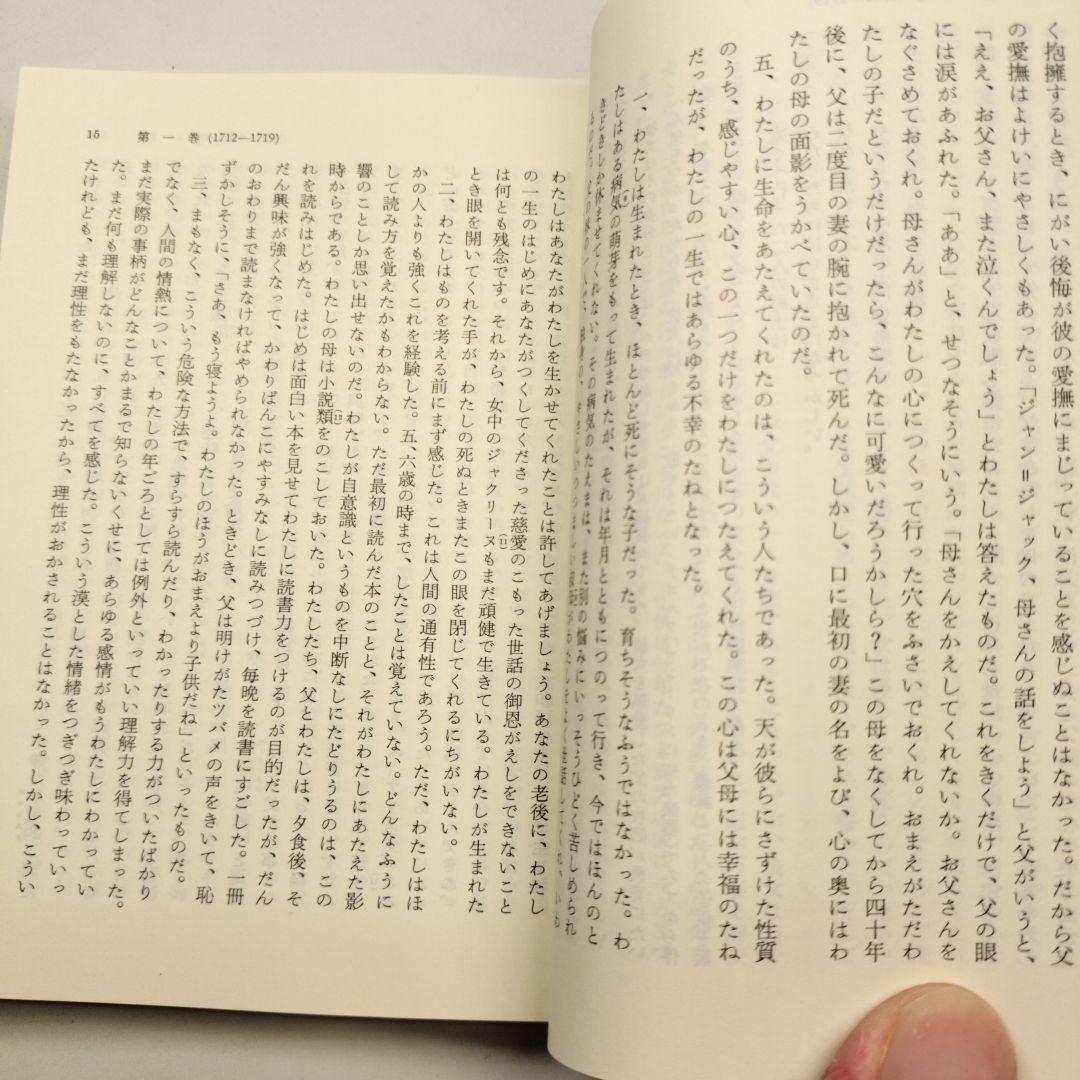 く抱擁するとき、にがい後悔が彼の愛撫にまじっていることを感じぬことはなかった。だから父
の愛撫はよけいにやさしくもあった。「ジャン＝ジャック、母さんの話をしよう」と父がいうと、
「ええ、お父さん、また泣くんでしょう」とわたしは答えたものだ。これをきくだけで、父の眼
には涙があふれた。「ああ」と、せつなそうにいう。「母さんをかえしてくれないか。お父さんを
なぐさめておくれ。母さんがわたしの心につくって行った穴をふさいでおくれ。おまえがただわ
たしの子だというだけだったら、こんなに可愛いだろうかしら？」この母をなくしてから四十年
後に、父は二度目の妻の腕に抱かれて死んだ。しかし、口に最初の妻の名をよび、心の奥にはわ
たしの母の面影をうかべていたのだ。
五、わたしに生命をあたえてくれたのは、こういう人たちであった。天が彼らにさずけた性質
のうち、感じやすい心、この一つだけをわたしにつたえてくれた。この心は父母には幸福のたね
だったが、わたしの一生ではあらゆる不幸のたねとなった。
一、わたしは生まれたとき、ほとんど死にそうな子だった。育ちそうなふうではなかった。わ
たしはある病気の萌芽をもって生まれたが、それは年月とともにつのって行き、今ではほんのと
きどきしか休ませてくれない。その病気のたえまは、また別の悩みにいっそうひどく苦しめられ
15 第一巻 (1712—1719)
わたしはあなたがわたしを生かせてくれたことは許してあげましょう。あなたの老後に、わたし
の一生のはじめにあなたがつくしてくださった慈愛のこもった世話の御恩がえしをできないこと
は何とも残念です。それから、女中のジャクリーヌ(11)もまだ頑健で生きている。わたしが生まれた
とき眼を開いてくれた手が、わたしの死ぬときまたこの眼を閉じてくれるにちがいない。
二、わたしはものを考える前にまず感じた。これは人間の通有性であろう。ただ、わたしはほ
かの人よりも強くこれを経験した。五、六歳の時まで、したことは覚えていない。どんなふうに
して読み方を覚えたかもわからない。ただ最初に読んだ本のことと、それがわたしにあたえた影
響のことしか思い出せないのだ。わたしが自意識というものを中断なしにたどりうるのは、この
時からである。わたしの母は小説類をのこしておいた。わたしたち、父とわたしは、夕食後、そ
れを読みはじめた。はじめは面白い本を見せてわたしに読書力をつけるのが目的だったが、だん
だん興味が強くなって、かわりばんこにやすみなしに読みつづけ、毎晩を読書にすごした。一冊
のおわりまで読まなければやめられなかった。ときどき、父は明けがたツバメの声をきいて、恥
ずかしそうに、「さあ、もう寝ようよ。わたしのほうがおまえより子供だね」といったものだ。
三、まもなく、こういう危険な方法で、すらすら読んだり、わかったりする力がついたばかり
でなく、人間の情熱について、わたしの年ごろとしては例外といっていい理解力を得てしまった。
まだ実際の事柄がどんなことかまるで知らないくせに、あらゆる感情がもうわたしにわかってい
た。まだ何も理解しないのに、すべてを感じた。こういう漠とした情緒をつぎつぎ味わっていっ
たけれども、まだ理性をもたなかったから、理性がおかされることはなかった。しかし、こうい